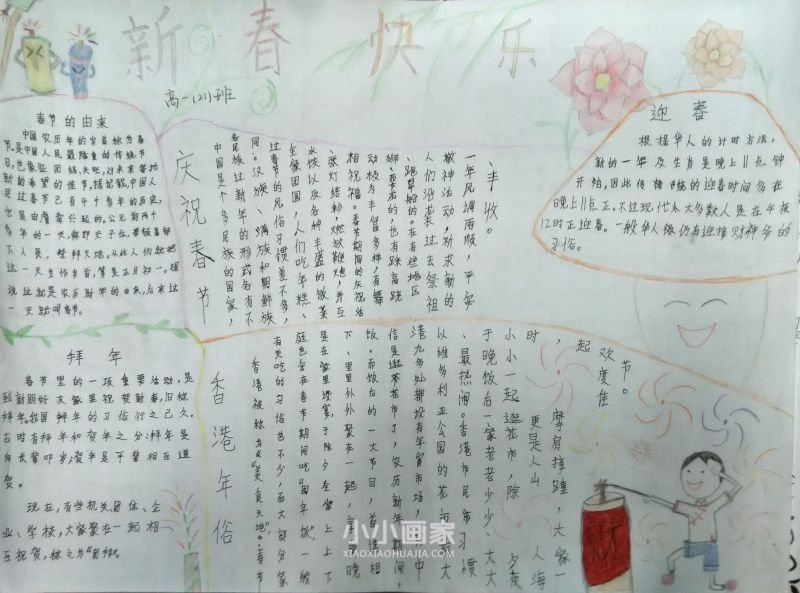 新春快乐
高一(21)班
春节的由来
中国农历年的岁首称为春
节。是中国人民最隆重的传统节
日，也象征团结、兴旺，对未来寄托
新的希望的佳节。据记载，中国人
是过春节已有4千多年的历史，
它是由虞舜兴起的。公元前两千
多年的一天，舜即天子位，带领着部
下人员，祭拜天地。从此人们就把
这一天当作岁首，算是正月初一。据
说这就是农历新年的由来，后来这
一天就叫春节。
庆祝春节
中国是个多民族的国家，
各民族过新年的形式各有不
同。汉族、满族和朝鲜族
过春节的风俗习惯差不多，
全家团圆，人们吃年糕、
水饺以及各种丰盛的饭菜
、张灯结彩，燃放鞭炮，并互
相祝福。春节期间的庆祝活
动极为丰富多样，有舞
狮、耍龙的，也有踩高跷
、跑旱船的。在有些地区
人们沿袭过去祭祖
敬神活动，祈求新的
一年风调雨顺，平安
、丰收。
迎春
根据华人的计时方法，
新的一年及生肖是晚上11点钟
开始，因此传统的迎春时间多在
晚上11点正。不过现代大多数人是在午夜
12时正迎春。一般华人家仍有迎接财神爷的
习俗。
拜年
春节里的一项重要活动，是
到新朋好友家里祝贺新春，旧称
拜年。我国拜年的习俗由之已久。
古时有拜年和贺年之分：拜年是
向长辈叩岁；贺年是平辈相互道
贺。
现在，有些机关团体、企
业、学校，大家聚在一起相
互祝贺，称之为"团拜。
香港年俗
香港被称为"美食天地"，春节
有关吃的习俗也不少，而大部分家
庭也会在春节期间吃"团年饭"，一般
是在家里于除夕全家上上下
下、里里外外聚在一起，晚
饭。而饭后的一大节目，首相
信是逛花市了，农历新年期间，
港九多处都设有年宵市场，中
以维多利亚公园的花市大
、最热闹。香港市民习惯
于晚饭后一家老老少少、大大
小小一起逛花市，除夕夜
时，更是人山人海
，摩肩接踵，大家一
起欢度佳
节。
小小画家
XIAOXIAOHUAJIA.COM